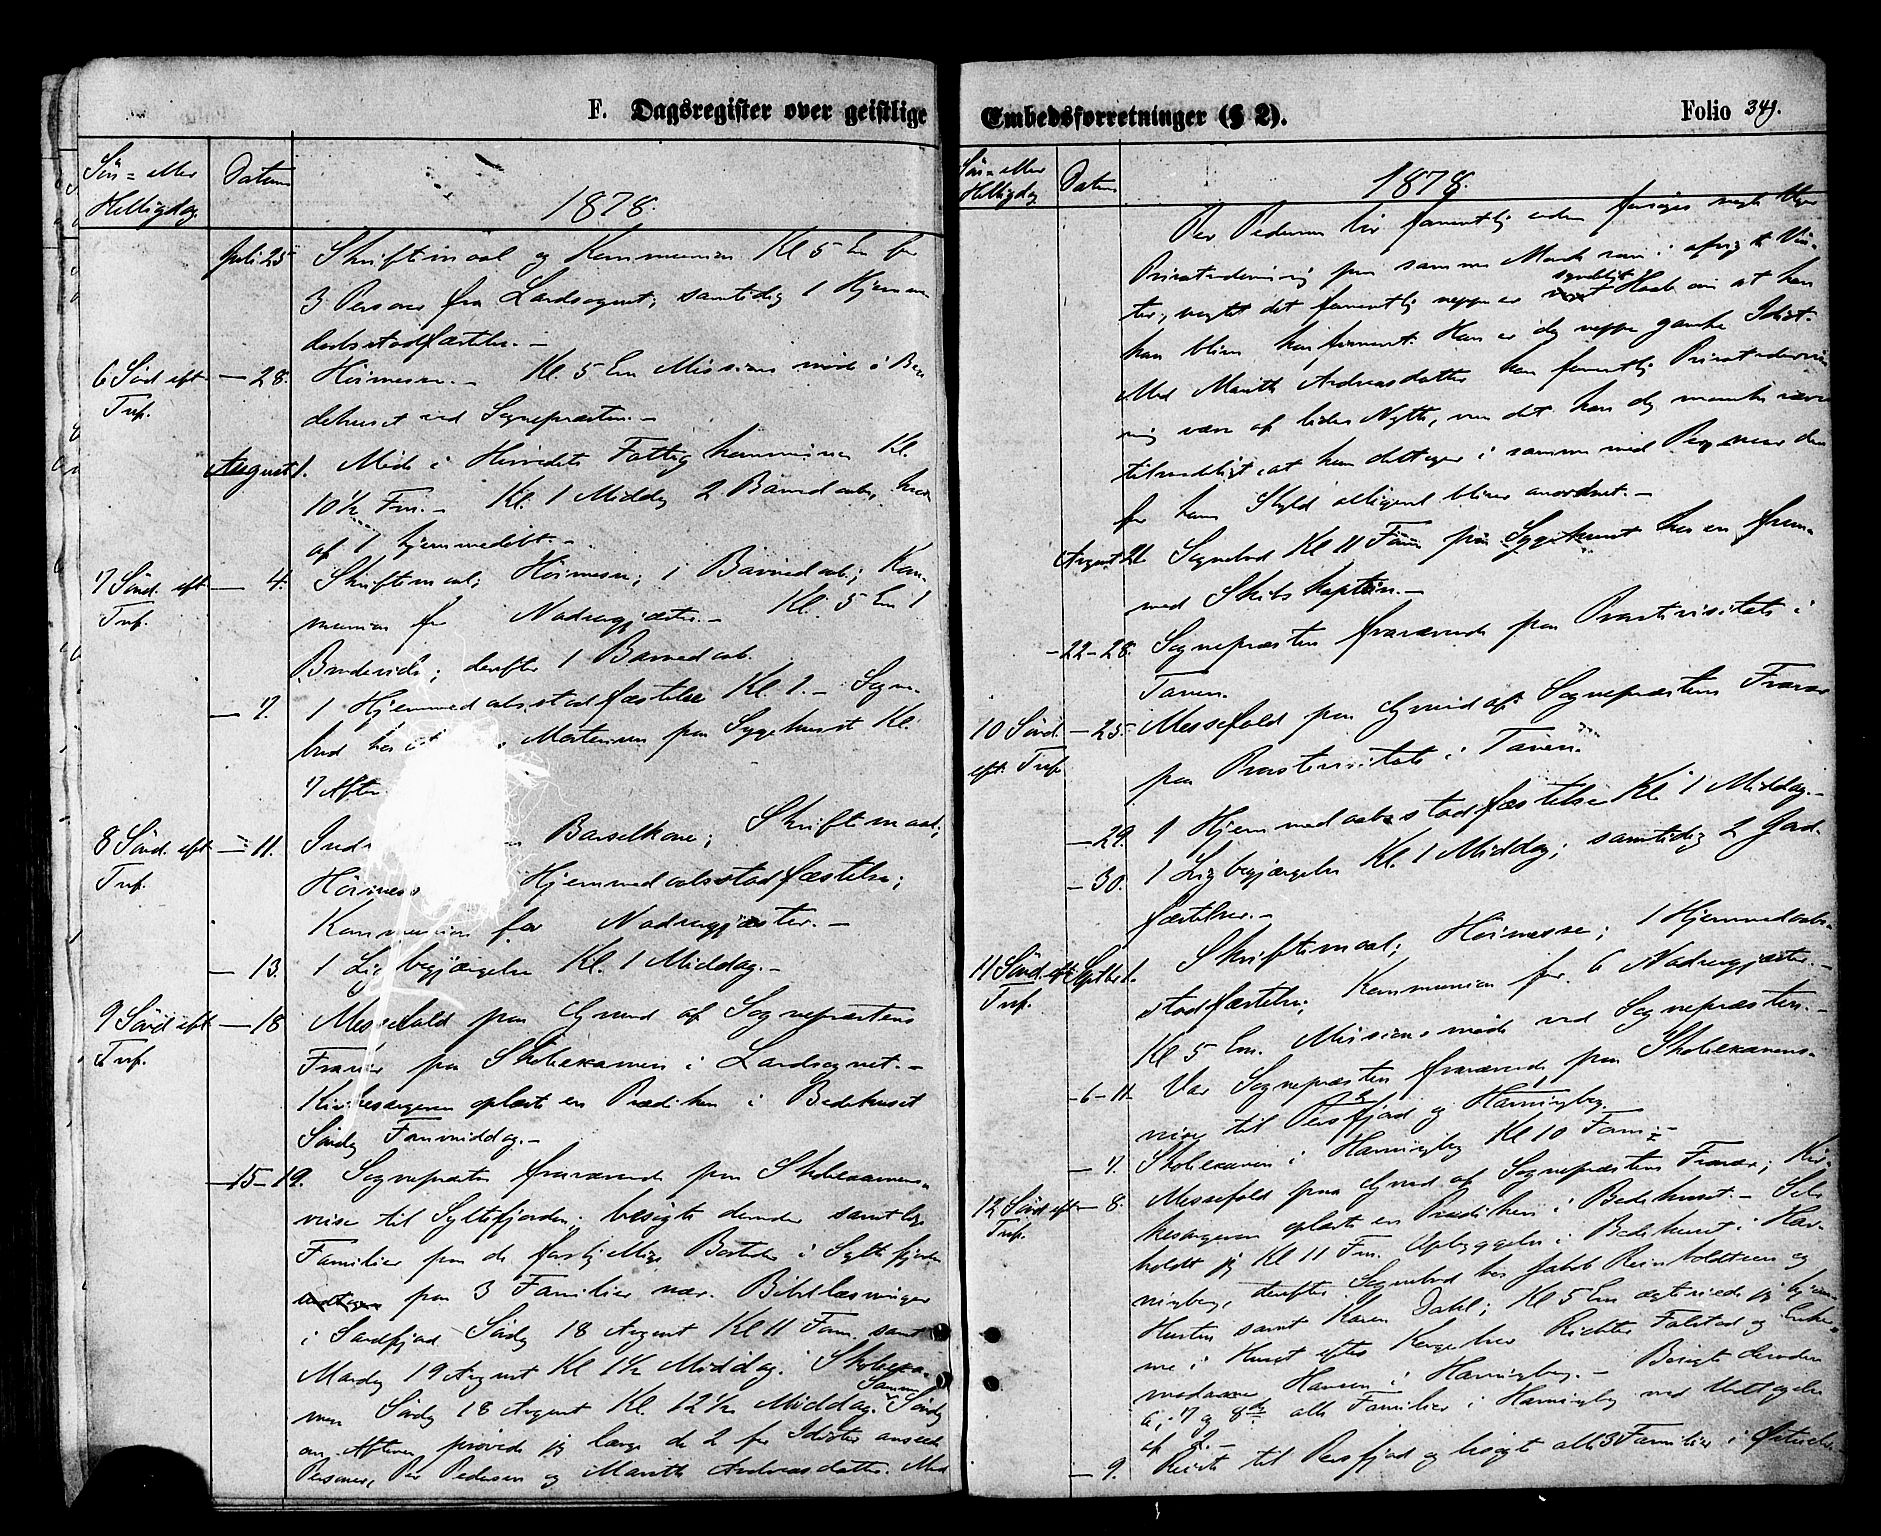 F. Dagsregister over geistlige
Søn- eller Helligdag
Datum
1878.
Juli 25 Skriftemaal og Kommunion Kl 5 Em for
3 Personer fra Landsognet; samtidig 1 Hjemme
daabsstadfæstelse. –
6 Sønd eft – 28. Høimesse. – Kl. 5 Em Missions møde i Be
Tref. dehuset ved Sognepræsten. –
August 1. Møde i Herredets Fattigkommission Kl.
10½ Fm. – Kl. 1 Middag 2 Barnedaab, hvor
af 1 hjemmedøbt. –
7 Sønd. eft – 4. Skriftemaal; Høimesse; 1 Barnedaab; Kom
Tref. munion for Nadvergjæster. – Kl. 5 Em 1
Brudevielse; derefter 1 Barnedaab.
– 7. 1 Hjemmedaabsstadfæstelse Kl. 1. – Sogne
bud hos Mortensen paa Sygehuset Kl.
7 Aften
8 Sønd. eft – 11. Barselkone; Skriftemaal;
Tref. Høimess Hjemmedaabsstadfæstelse;
Kommunion for Nadvergjæster. –
– 13. 1 Ligbegjængelse Kl. 1 Middag. –
9 Sønd eft – 18 Messefald paa Grund af Sognepræstens
Tref. Fravær paa Skoleexamen i Landsognet. –
Kirkesangeren oplæste en Prædiken i Bedehuset
Søndag Formiddag. –
– 15 – 19. Sognepræsten fraværende paa Skoleexamens-
reise til Syltefjorden; besøgte derunder samtlige
Familier paa de forskjellige Bosteder i Syltefjorden
paa 3 Familier nær. Bibellæsninger
i Sandfjord Søndag 18 August Kl 11 Form. samt
Mandag 19 August Kl 1½ Middag. Skoleexa-
men Søndag 18 August Kl. 12½ Middag. Samme Søndag
om Aftenen prøvede jeg længe de 2 for Idioter ansede
Personer, Per Pedersen og Marith Andreasdatter. Med
Embedsforretninger (§ 2).
Folio 349.
Søn- eller Helligdag
Datum
1878.
Per Pedersen bør formentlig uden forsøges nogle Uger
Privatundervisning paa samme Maade som i afvigte Vin-
ter, uagtet det formentlig neppe er synderligt Haab om at han
kan blive konfirmeret. Han er dog neppe ganske Idiot.
Med Marith Andreasdatter kan formentlig Privatundervis
ning være af liden Nytte, men det kan dog maaske være
tilraadeligt, at hun deltager i samme med Per, naar den
for hans Skyld alligevel bliver anordnet. –
August 21. Sognebud Kl 11 Form paa Sygehuset hos en frem-
med Skibskaptein. –
– 22 – 28. Sognepræsten fraværende paa Provstivisitats i
Tanen.
10 Sønd. – 25. Messefald paa Grund af Sognepræstens Fravær
eft. Tref. paa Provstivisitats i Tanen.
– 29. 1 Hjemmedaabsstadfæstelse Kl 1 Middag. –
– 30. 1 Ligbegjængelse Kl. 1 Middag; samtidig 2 Jord-
fæstelser. –
11 Sønd. eft Septbr 1. Skriftemaal; Høimesse; 1 Hjemmedaabs-
Tref. stadfæstelse; Kommunion for 6 Nadvergjæster. –
Kl 5 Em. Missionsmøde ved Sognepræsten. –
– 6 – 11. Var Sognepræsten fraværende paa Skoleexamens-
reise til Persfjord og Havningberg.
– 7. Skoleexamen i Havningberg Kl 10 Form. –
12 Sønd. eft – 8. Messefald paa Grund af Sognepræstens Fravær; Kir-
Tref. kesangeren oplæste en Prædiken i Bedehuset. – Selv
holdt jeg Kl 11 Fm. Opbyggelse i Bedehuset i Hav-
ningberg, derefter Sognebud hos Jakob Reinholdtsen og
Hustru samt Karen Dahl; Kl 5 Em ægteviede jeg hjem-
me i Huset efter Kongebrev Richter Falstad og Enke-
madame Hansen i Havningberg. – Besøgte derunder
6, 7 og 8de alle Familier i Havningberg med Undtagelse
af 2. –
– 9. Reiste til Persfjord og besøgte alle 3 Familier i